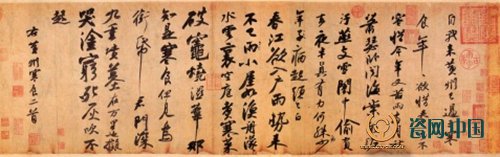 自我來黃州已過三寒
食年〻欲惜春〻去不
容惜今年又苦雨兩月秋
蕭瑟臥聞海棠花泥
汙燕支雪闇中偷負
去夜半真有力何殊少
年子病起頭已白
春江欲入戶雨勢來
不已小屋如漁舟濛〻
水雲裏空庖煮寒菜
破竈燒濕葦那
知是寒食但見烏
銜帋君門深
九重墳墓在万里也擬
哭塗窮死灰吹不
起
右黃州寒食二首
瓷网中国